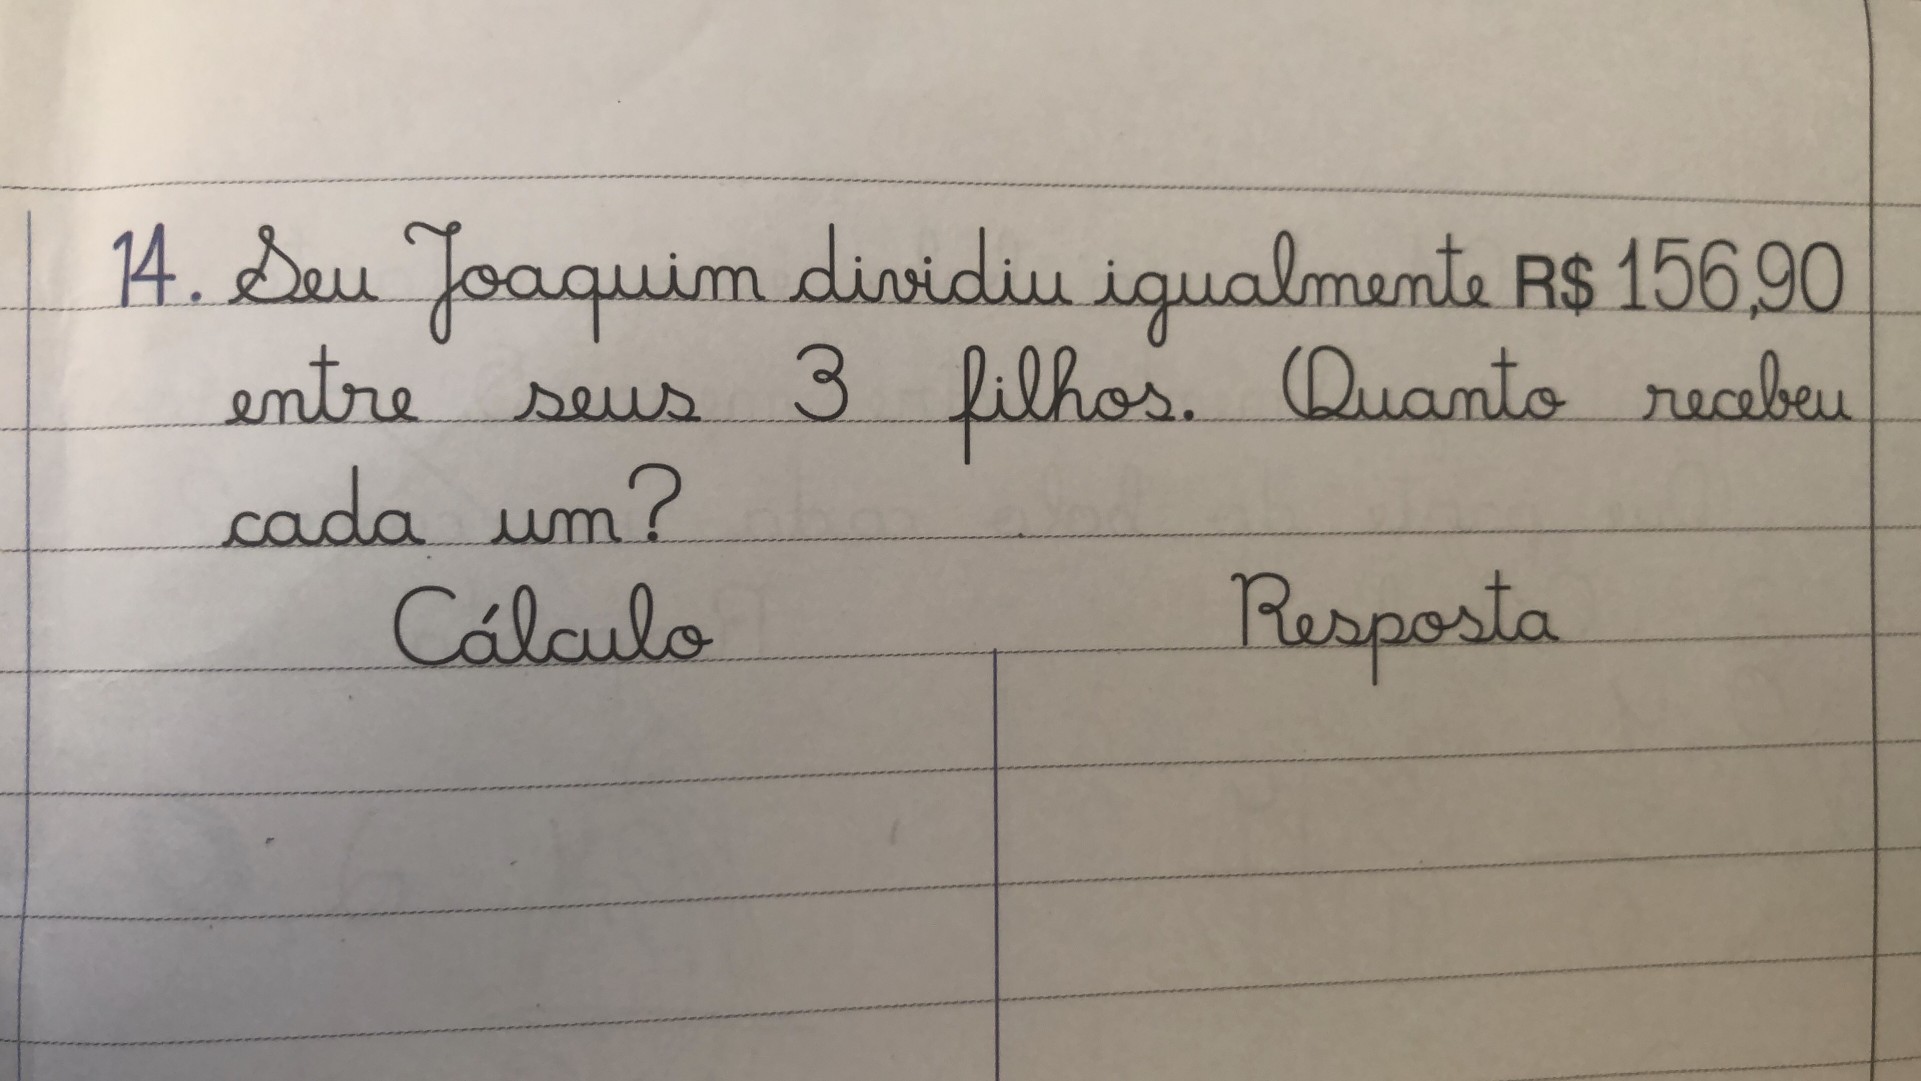 14. Seu Joaquim dividiu igualmente R$ 156,90
entre seus 3 filhos. Quanto recebeu
cada um?
Cálculo Resposta